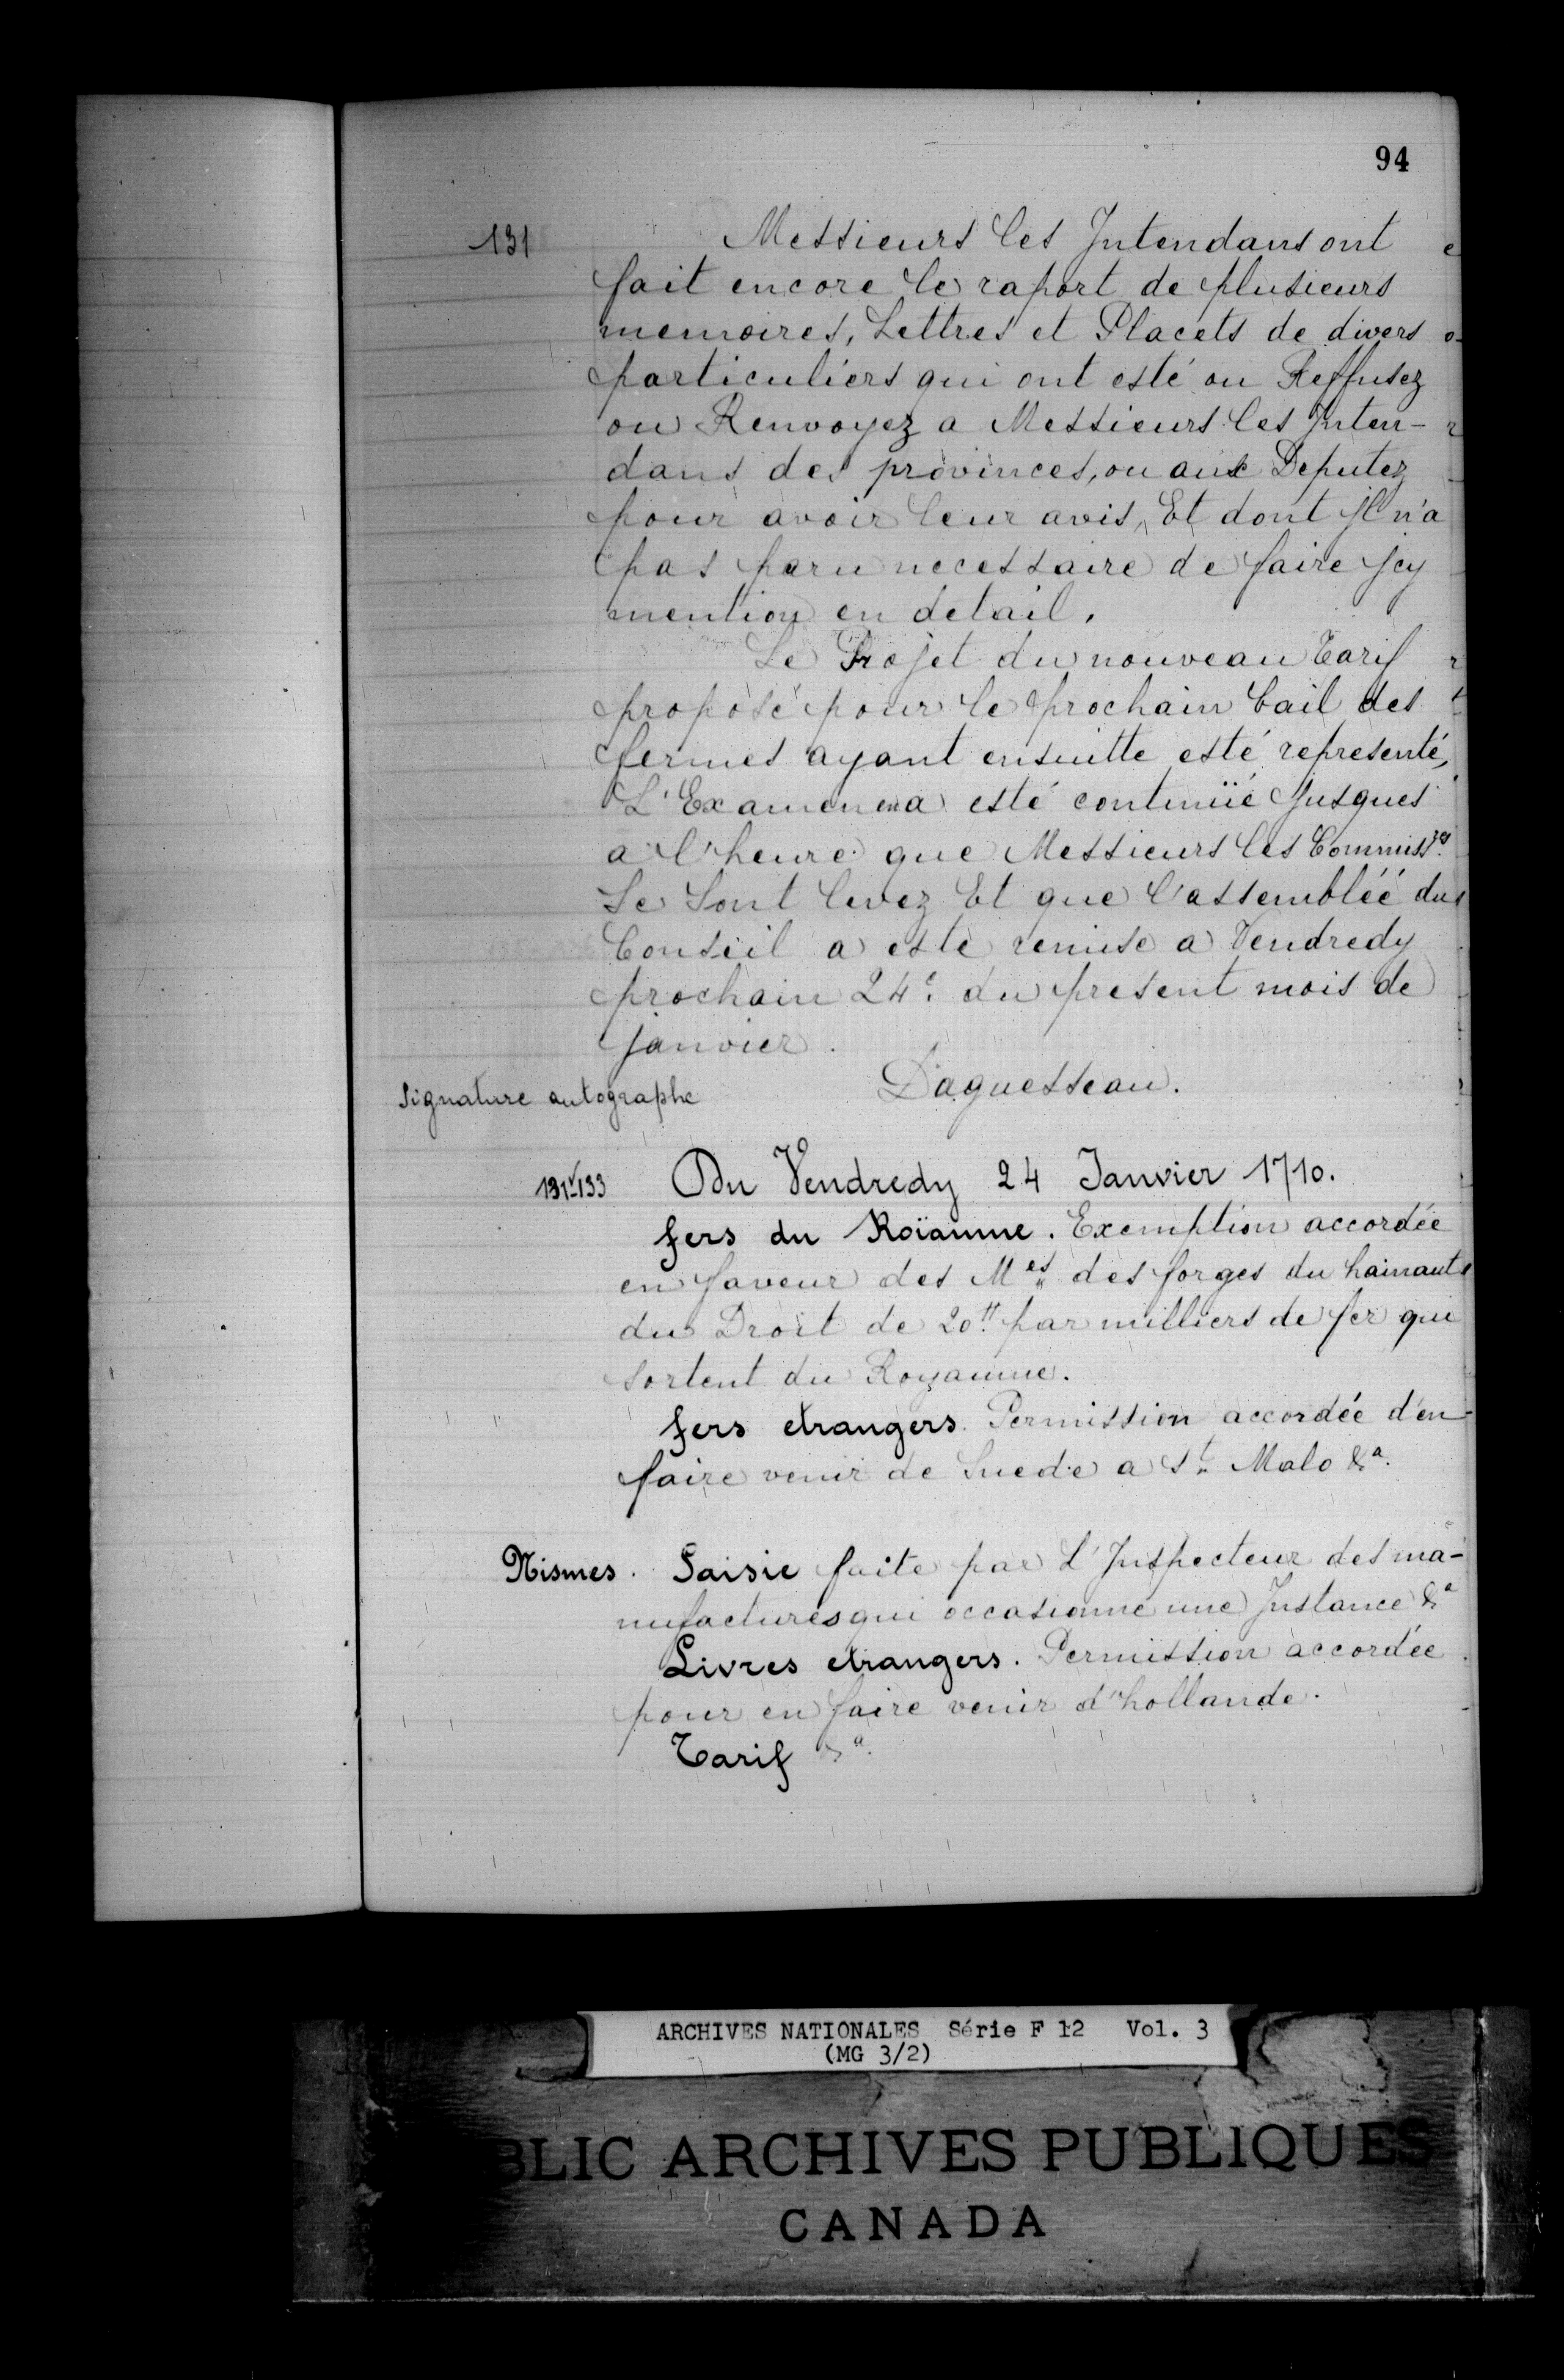 94
131
Messieurs les Intendans ont
fait encore le raport de plusieurs
memoires, Lettres et Placets de divers
particuliers qui ont esté ou Reffusez
ou Renvoyez a Messieurs les Inten-
dans des provinces, ou aux Deputez
pour avoir leur avis, Et dont Jl n'a
pas paru necessaire de faire Jcy
mention en detail.
Le Projet du nouveau Tarif
proposé pour le prochain bail des
fermes ayant ensuitte esté representé,
L'Examen en a esté continüé Jusques
a l'heure que Messieurs les Commissres
Se Sont levez Et que l'assemblée du
Conseil a esté remise a Vendredy
prochain 24e. du present mois de
Janvier.
Signature autographe
Daguesseau.
131v-133
Du Vendredy 24 Janvier 1710.
fers du Roïaume. Exemption accordée
en faveur des Mes des forges du hainaut
du Droit de 20tt par milliers de fer qui
sortent du Royaume.
fers etrangers. Permission accordée d'en
faire venir de Suede a St Malo &a.
Nismes. Saisie faite par L'Inspecteur des ma-
nufactures qui occasionne une Instance &a
Livres etrangers. Permission accordée
pour en faire venir d'hollande.
Tarif &a.
ARCHIVES NATIONALES Série F 12 Vol. 3
(MG 3/2)
BLIC ARCHIVES PUBLIQUES
CANADA